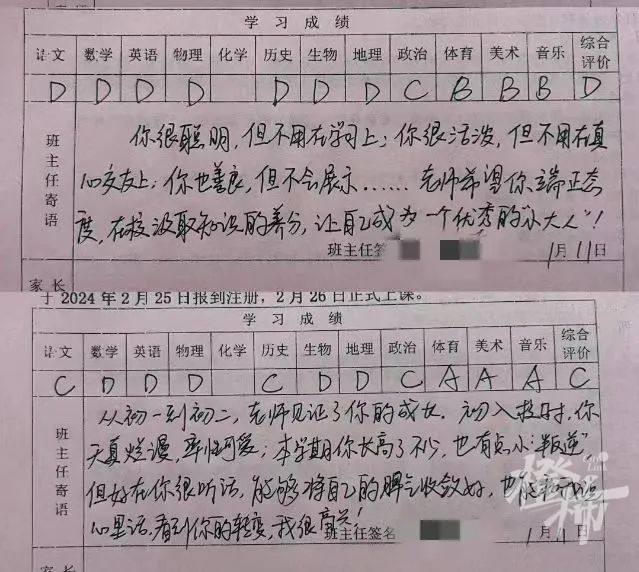 学习成绩
语文 数学 英语 物理 化学 历史 生物 地理 政治 体育 美术 音乐 综合评价
D D D D D D D C B B B D
班主任寄语
你很聪明，但不用在学习上；你很活泼，但不用在真
心交友上；你也善良，但不会展示……老师希望你端正态
度，在校汲取知识的养分，让自己成为一个优秀的“小大人”！
班主任签 1月11日
家长
于2024年2月25日报到注册，2月26日正式上课。
学习成绩
语文 数学 英语 物理 化学 历史 生物 地理 政治 体育 美术 音乐 综合评价
C D D D C D D C A A A C
班主任寄语
从初一到初二，老师见证了你的成长。初入校时，你
天真烂漫，率性可爱；本学期你长高了不少，也有点小“叛逆”
但好在你很听话，能够将自己的脾气收敛好，也能
心里话，看到你的转变，我很高兴！
班主任签名 1月11日
家长
橙柿